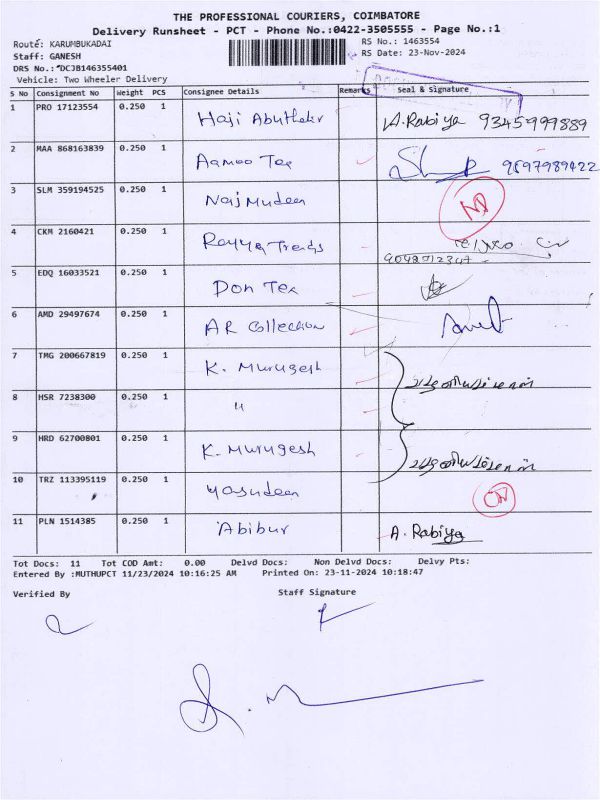 THE PROFESSIONAL COURIERS, COIMBATORE
Delivery Runsheet - PCT - Phone No.:0422-3505555 - Page No.:1
Route: KARUMBUKADAI
RS No.: 1463554
Staff: GANESH
RS Date: 23-Nov-2024
DRS No.: DCJB146355401
Vehicle: Two Wheeler Delivery
S No Consignment No Weight PCS Consignee Details Remarks Seal & Signature
1 PRO 17123554 0.250 1 Haji Abuthekr A. Rabiya 9345999889
2 MAA 868163839 0.250 1 Aamoo Tex 9597989422
3 SLM 359194525 0.250 1 Najmudeen
4 CKM 2160421 0.250 1 Rayya Trends
5 EDQ 16033521 0.250 1 Don Tex
6 AMD 29497674 0.250 1 AR Collection
7 TMG 200667819 0.250 1 K. Murugesh
8 HSR 7238300 0.250 1 "
9 HRD 62700801 0.250 1 K. Murugesh
10 TRZ 113395119 0.250 1 Yasudeen
11 PLN 1514385 0.250 1 Abibur A. Rabiya
Tot Docs: 11 Tot COD Amt: 0.00 Delvd Docs: Non Delvd Docs: Delvy Pts:
Entered By :MUTHUPCT 11/23/2024 10:16:25 AM Printed On: 23-11-2024 10:18:47
Verified By Staff Signature